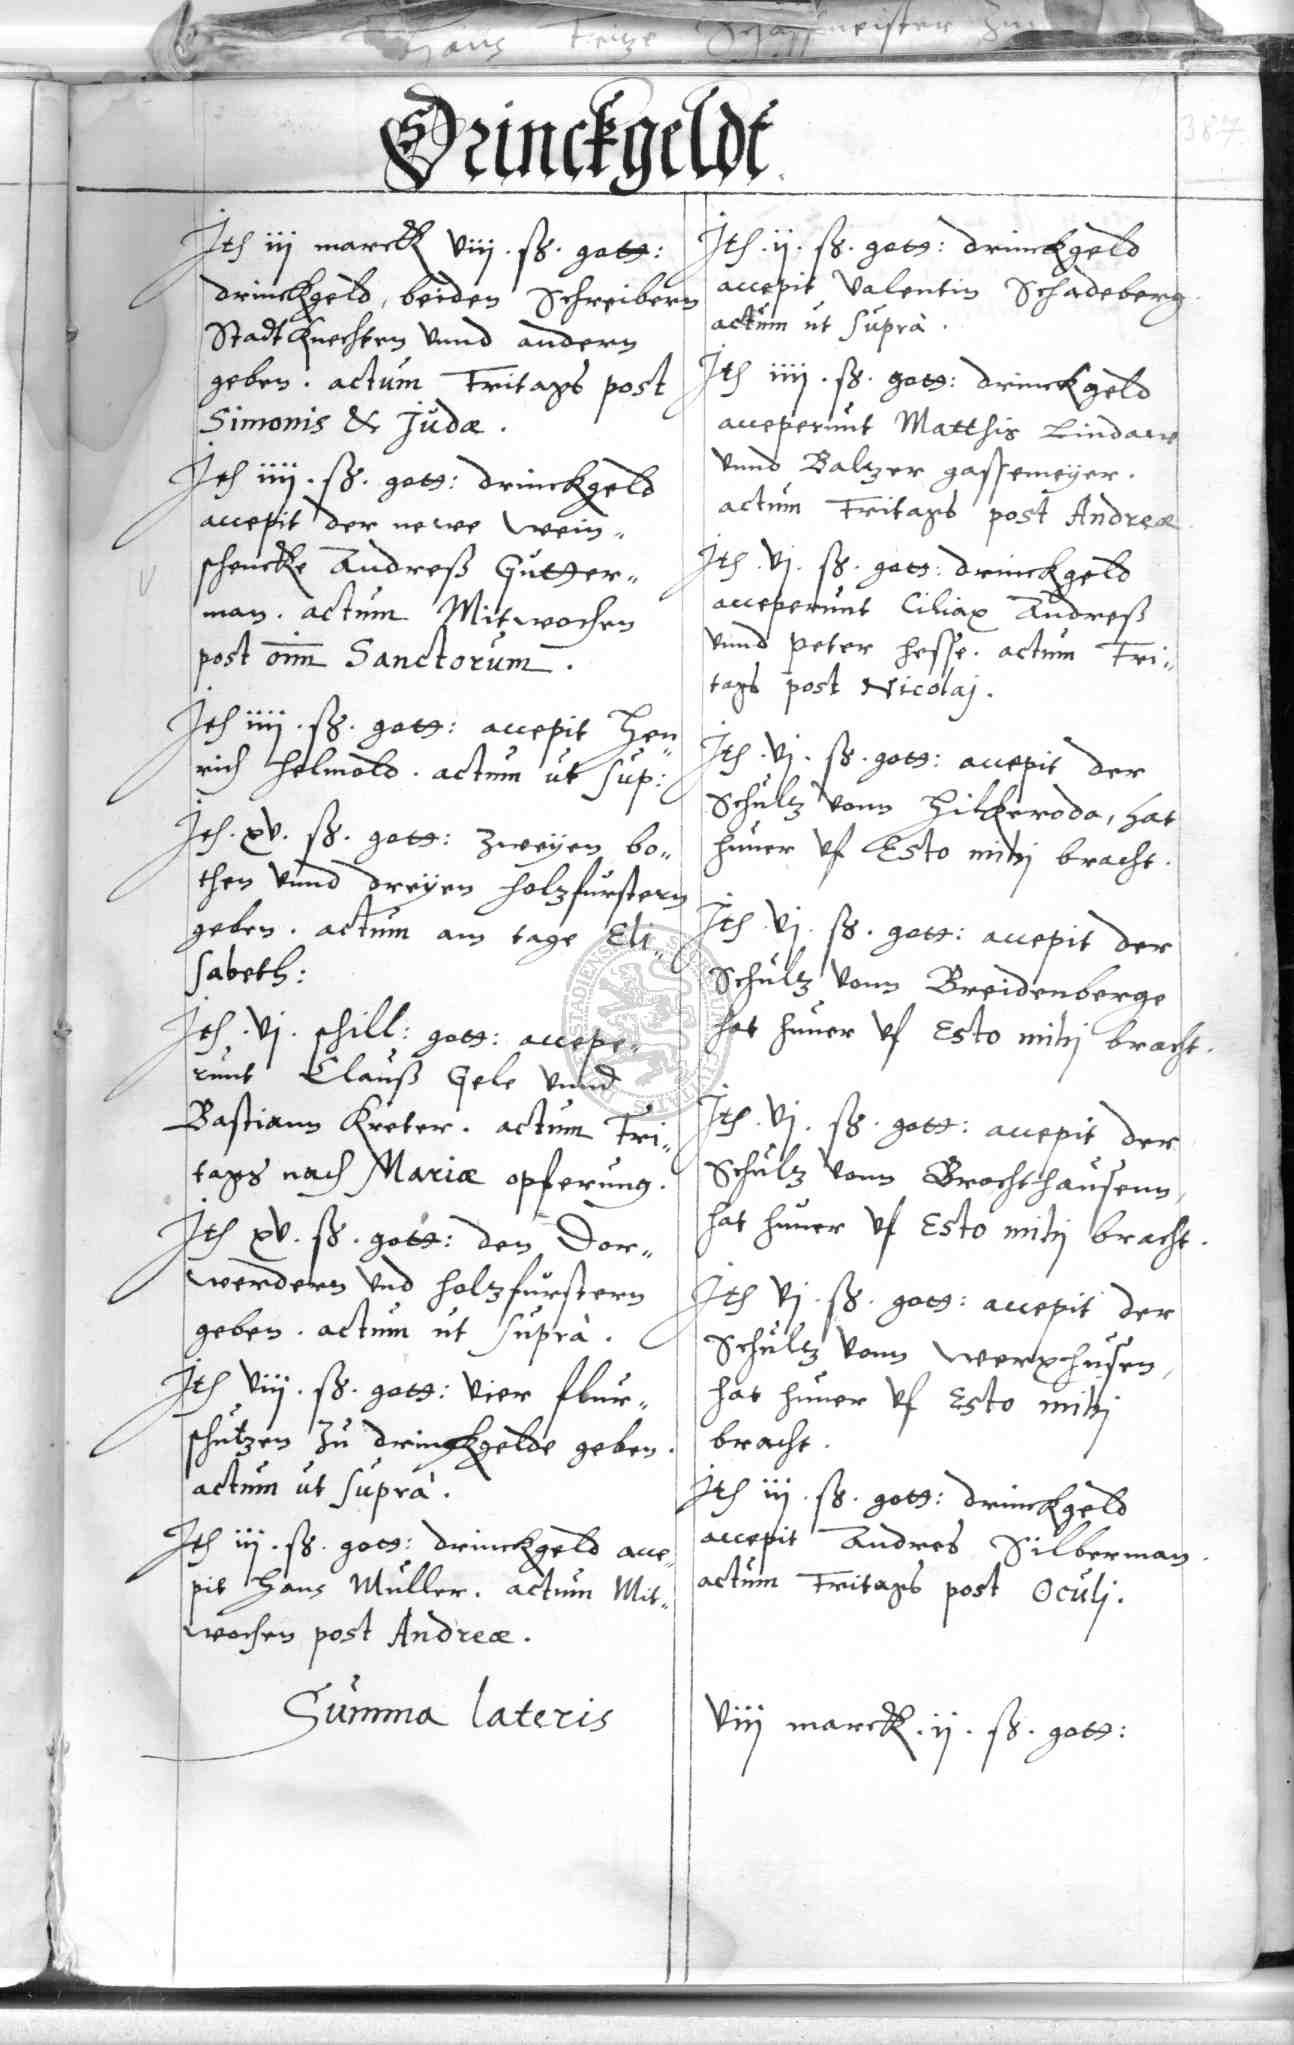 387
Drinckgeldt
Ith iij marck viij . ß. gott:
drinckgeld, beiden Schreibern
StadtKnechten vnnd andern
geben . actum Fritags post
Simonis & Judæ .
Ith iiij . ß. gott: drinckgeld
accepit der newe Wein„
schencke Andreß Gutter„
man . actum Mitwochen
post oīm Sanctorum .
Ith iiij . ß. gott: accepit Hen„
rich Helmold . actum ut sup:
Ith . xv. ß. gott: Zweÿen bo„
then vnnd dreÿen Holzfurstern
geben . actum am tage Eli„
sabeth:
Ith . vj . schill: gott: accepe„
runt Clauß Gele vnnd
Bastiann Kreter . actum Fri„
tags nach Mariæ opferung .
Ith xv. ß. gott: den Dor„
werdern vnd Holzfurstern
geben . actum ut suprà .
Ith viij . ß. gott: vier flur„
schutzen Zu drinckgelde geben .
actum ut suprà .
Ith iij . ß. gott: drinckgeld acce„
pit Hans Muller . actum Mit„
wochen post Andreæ .
Summa lateris
Ith . ij . ß. gott: drinckgeld
accepit Valentin Schadeberg .
actum ut suprà .
Ith iiij . ß. gott: drinckgeld
acceperunt Matthis Lindaw
vnnd Baltzer gassemeÿer .
actum Fritags post Andreæ .
Ith . vj . ß. gott: drinckgeld
acceperunt Ciliax Andreß
vnnd Peter Hesse . actum Fri„
tags post Nicolaj .
Ith . vj . ß. gott: accepit der
Schultz vonn Hilkeroda, hat
huner vf Esto mihj bracht .
Ith . vj . ß. gott: accepit der
Schultz vonn Breidenberge
hat huner vf Esto mihj bracht .
Ith . vj . ß. gott: accepit der
Schultz vonn Brochthausenn,
hat huner vf Esto mihj bracht .
Ith vj . ß. gott: accepit der
Schultz vonn Werxhusen,
hat huner vf Esto mihj
bracht .
Ith iij . ß. gott: drinckgeld
accepit Andres Silberman .
actum Fritags post Oculj .
viij marck . ij . ß. gott: